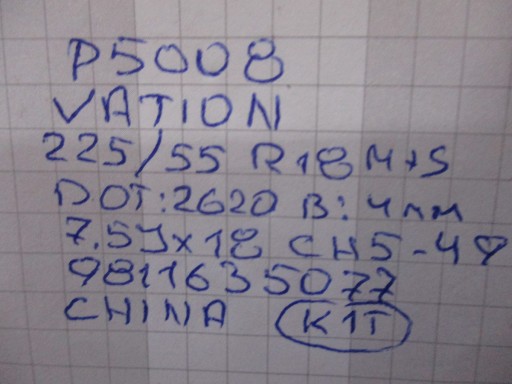 P5008
VATION
225/55 R18 M+S
DOT:2620 B: 4mm
7.5Jx18 CH5-49
9811635077
CHINA KIT